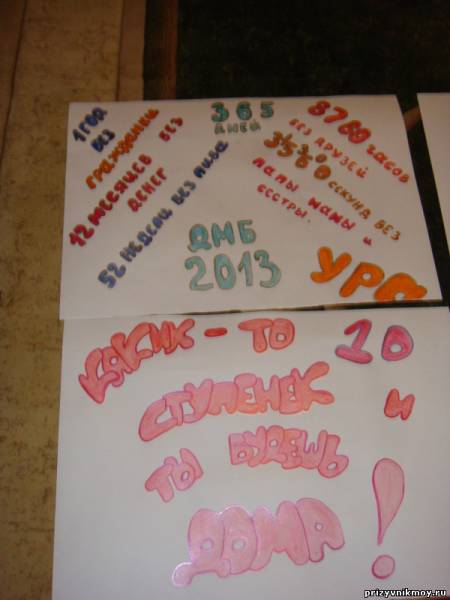 1 год
без
гражданки
12 месяцев без
денег
52 недели без пива
365
дней
8760 часов
без друзей
секунд без
папы мамы и
сестры.
ДМБ
2013
УРА
КАКИХ - ТО 10
СТУПЕНЕК И
ТЫ БУДЕШЬ
ДОМА!
prizyvnikmoy.ru